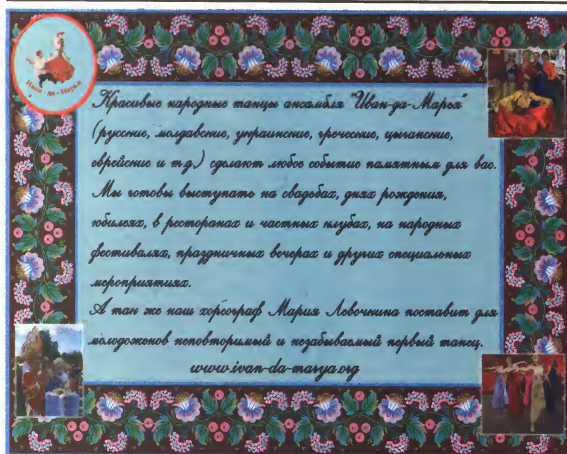 Иван-да-Марья
Красивые народные танцы ансамбля "Иван-да-Марья"
(русские, молдавские, украинские, греческие, цыганские,
еврейские и т.д.) сделают любое событие памятным для вас.
Мы готовы выступать на свадьбах, днях рождения,
юбилеях, в ресторанах и частных клубах, на народных
фестивалях, праздничных вечерах и других специальных
мероприятиях.
А так же наш хореограф Мария Левочкина поставит для
молодоженов неповторимый и незабываемый первый танец.
www.ivan-da-marya.org